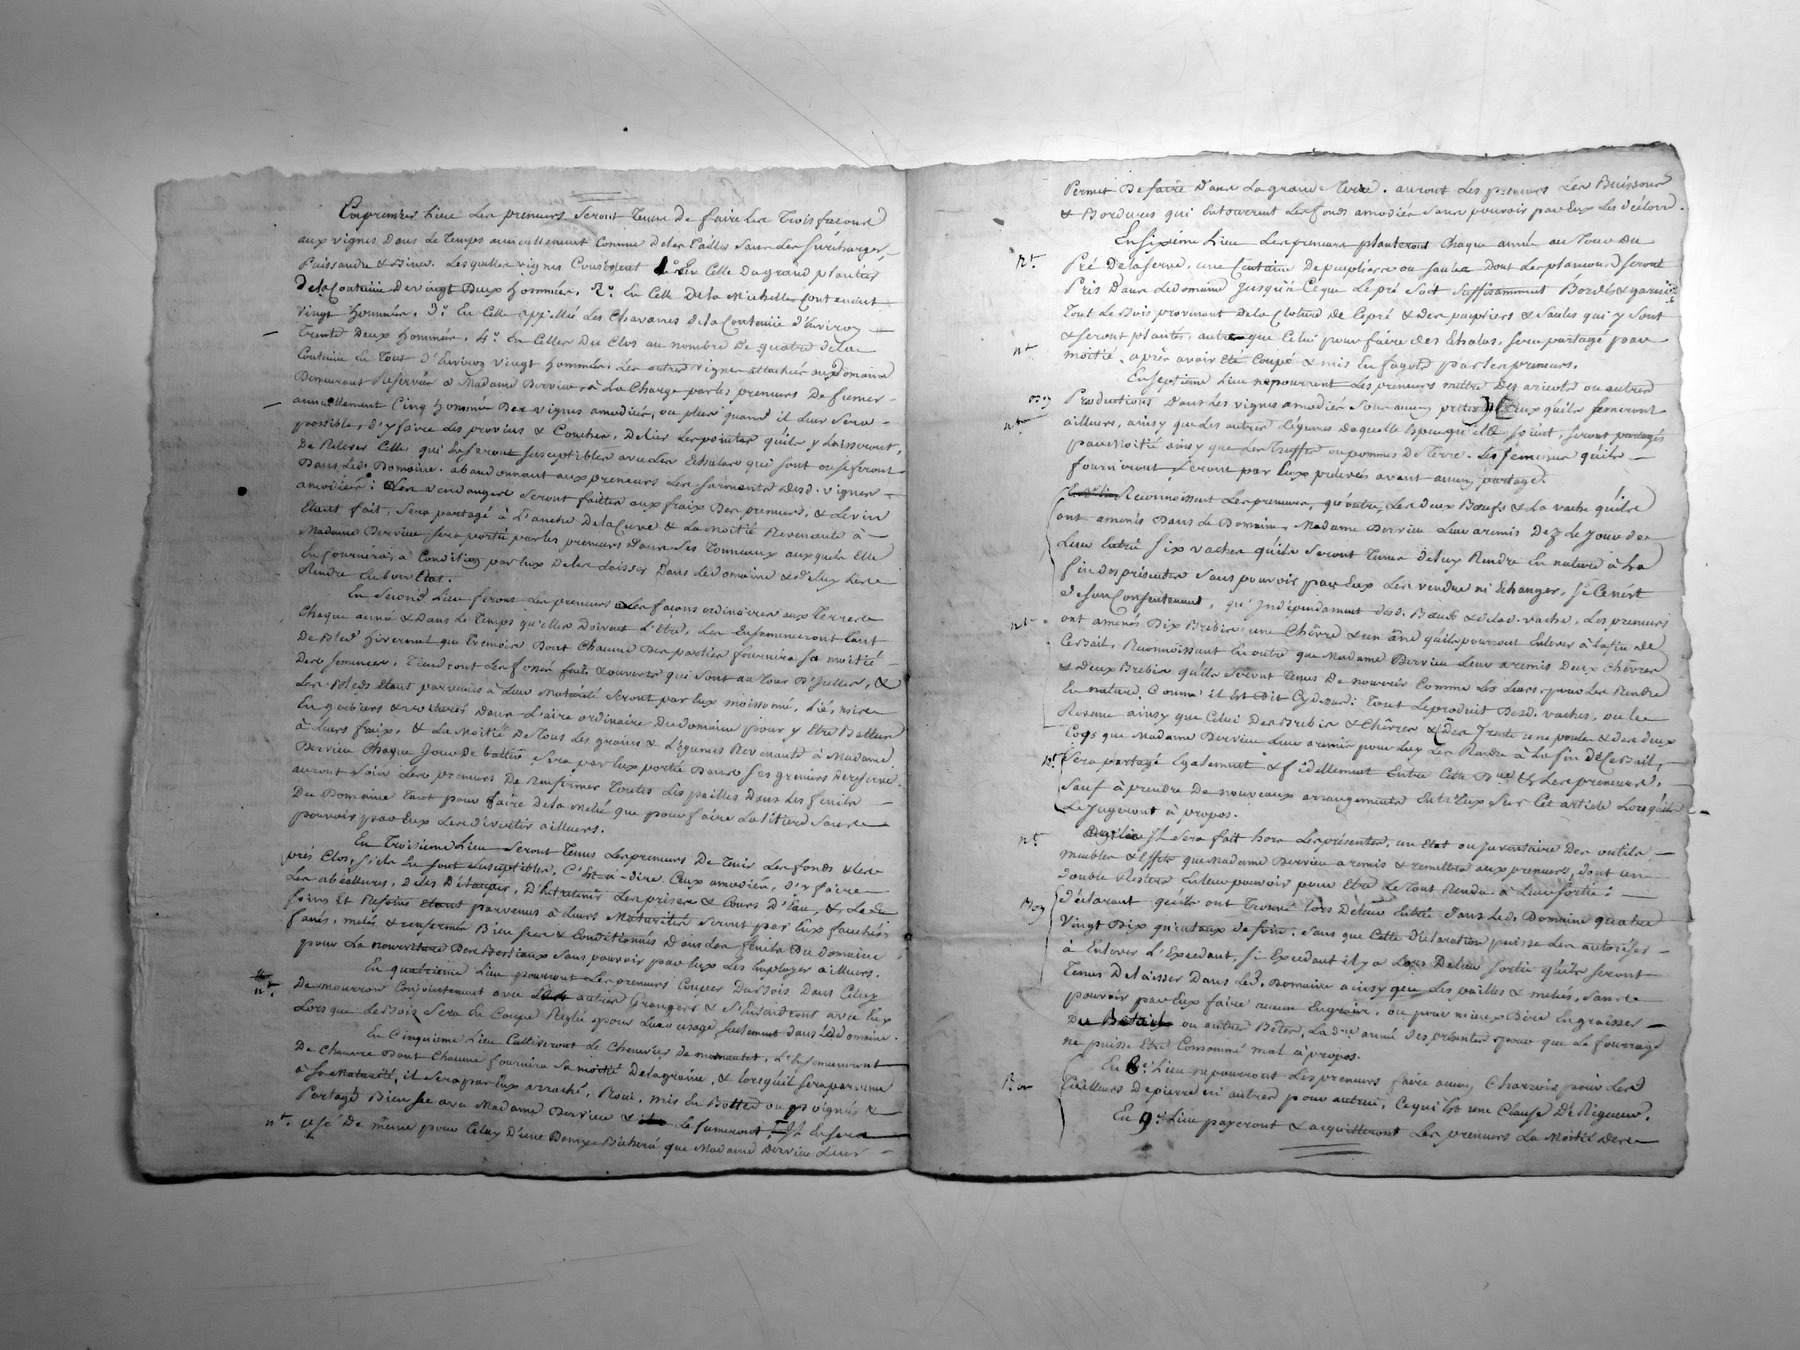 En premier Lieu Les preneurs Seront Tenus de faire Les Trois façons
aux vignes Dans Le Temps annuellement Comme De les Tailler Sans Les Surcharger,
Puissardre & Biner. Lesquelles vignes Consistent 1º En Celle Du grand plantier
De la Contenüe De vingt Deux hommées, 2º En Celle De la Michelle Contenant
vingt hommées, 3º En Celle appellée Les Chavanes De la Contenüe d'Environ
Trente Deux hommées, 4º En Celles Du Clos au nombre De quatre De la
Contenüe En Tout d'Environ vingt hommées. Les autres vignes attachées au Domaine
Demeurant Reservées a Madame Dervieu, à La Charge par les preneurs De fumer
annuellement Cinq hommées Des vignes amodiées, ou plus quand il Leur Sera
possible, d'y faire Les provins & Coucher, De lier Les pointes qu'ils y Laisseront,
De Relever Celles qui En Seront Susceptibles avec Les Echalas qui Sont ou Seront
Dans Led. Domaine. abandonnant aux preneurs Les Sarments Desd. vignes
amodiées: Les vendanges Seront faites aux fraix Des preneurs, & Le vin
Etant fait, Sera partagé à L'anche De la Cuve & La Moitié Revenante à
Madame Dervieu Sera porté par les preneurs Dans Ses Tonneaux auxquels Elle
En fournira, à Condition par Eux De les Laisser Dans Le Domaine & d'eluy Les
Rendre En bon Etat.
En Second Lieu feront Les preneurs Les façons ordinaires aux Terres
Chaque année & Dans Le Temps qu'elles Doivent L'Etre, Les Ensemenceront Tant
De Bled hivernal que Tremois Dont Chacune Des parties fournira Sa moitié
Des Semences, Tiendront Les fossés faits & ouverts qui Sont au Tour D'Icelles, &
Les Bleds Etant parvenus à Leur Maturité Seront par Eux moissonné, Liés, mis
En gerbiers & rentrés Dans L'aire ordinaire Du Domaine pour y Etre Battus
à Leurs fraix, & La Moitié De Tous Les grains & Légumes Revenante à Madame
Dervieu Chaque Jour De battue, Sera par Eux porté Dans Ses greniers
auront Soin Les preneurs De Renfermer Toutes Les pailles Dans Les fenils
Du Domaine Tant pour faire De la Melée que pour faire La litiere Sans
pouvoir par Eux Les Divertir ailleurs.
En Troisieme Lieu Seront Tenus Les preneurs De Tenir Les fonds & les
prés Clos, S'ils En Sont Susceptibles, C'Est a dire Ceux amodiés, D'y faire
Les abéallures, De les D'Etauper, D'Entretenir Les prises & Cours D'Eau, & Les
foins Et Regains Etant parvenus à Leurs Maturités Seront par Eux fauchés
fanés, melés & renfermés Bien Secs & Conditionnés Dans Les fenils Du Domaine
pour La nourriture Des Bestiaux Sans pouvoir par Eux Les Employer ailleurs.
En quatrieme Lieu pourront Les preneurs Couper Du Bois Dans Celuy
nt. De mourron Conjointement avec Les autres Grangers & S'Entendront avec Eux
Lors que Le Bois Sera En Coupe Reglée pour Leur usage Seulement Dans Le Domaine.
En Cinquieme Lieu Cultiveront Le Chenevier L'Ensemenceront
De Chanvre Dont Chacune fournira Sa moitié De la graine, & lorsqu'il Sera parvenu
à Sa Maturité, il Sera par Eux arraché, Roui, mis En Bottes ou & 
Partagé Bien Sec avec Madame Dervieu & Le fumeront, Il En Sera
nt. usé De même pour Celuy D'une que Madame Dervieu Leur
Permet De faire Dans La grande Terre. auront Les preneurs Les Buissons
& Bordures qui Entourrent Les fonds amodiés Sans pouvoir par Eux Les déclore.
En Sixiéme Lieu Les preneurs planteront Chaque année au Tour Du
nt. Pré De la Serve, une Centaine De peupliers ou Saules Dont Les plançons Seront
Pris Dans Le Domaine Jusqu'à Ce que Le pré Soit Suffisamment Bordé & garni.
Tout Le Bois provenant De la Cloture De Ce pré & Des peupliers & Saules qui y Sont
& Seront plantés, autre que Celui pour faire Des Echalas, Sera partagé par
nt. moitié après avoir Eté Coupé & mis En fagots par Les preneurs.
En Septieme Lieu ne pourront Les preneurs mettre Des aricots ou autres
Productions Dans Les vignes amodiées Sous aucun pretexte, Ceux qu'ils Semeront
nt. ailleurs, ainsy que Les autres Légumes De quelle Espece qu'elle Soient, Seront partagés
par Moitié ainsy que Les Truffes ou pommes De Terre. Les Semences qu'ils
fourniront Seront par Eux prelevés avant aucun partage.
Reconnoissent Les preneurs, qu'outre Les Deux Bœufs & La vache qu'ils
ont amenés Dans Le Domaine, Madame Dervieu Leur a remis Dez Le Jour De
Leur Entrée Six vaches qu'ils Seront Tenus De luy Rendre En nature à La
fin Des presentes Sans pouvoir par Eux Les vendre ni Echanger, Si Ce n'est
de Son Consentement, qu'Indépendament Desd. Bœufs & De lad. vache, Les preneurs
nt. ont amenés Dix Brebis, une Chêvre & un âne qu'ils pourront Enlever à La fin De
Ce Bail. Reconnoissent En outre que Madame Dervieu Leur a remis Deux Chêvres
& Deux Brebis qu'ils Seront Tenus De nourrir Comme Les Leurs, pour Les Rendre
En nature, Comme il Est Dit Cy dessus: Tout Le produit Desd. vaches, ou Le
Revenu ainsy que Celui Des Brebis & Chêvres & Des Trente une poules & Des deux
Coqs que Madame Dervieu Leur a remis pour Luy Les Rendre à La fin De Ce Bail,
nt. Sera partagé Egalement & fidellement Entre Cette Dame & Les preneurs,
Sauf à prendre De nouveaux arrangements Entr'Eux Sur Cet article Lorsqu'ils
Le Jugeront à propos.
nt. Il Sera fait hors Les présentes, un Etat ou Inventaire Des outils,
meubles & Effets que Madame Dervieu a remis & remettra aux preneurs, Dont un
Double Restera En leur pouvoir pour Etre Le Tout Rendu à Leur Sortie:
déclarant qu'ils ont Trouvé Lors De leur Entrée Dans Led. Domaine quatre
Vingt Dix quintaux de foin, Sans que Cette Déclaration puisse Les autoriser
à Enlever L'Excedant, Si Excedant il y a Lors De leur Sortie qu'ils Seront
Tenus De laisser Dans Led. Domaine ainsy que Les pailles & melées, Sans
pouvoir par Eux faire aucun Engrais, ou pour mieux Dire Engraisser
Du Betail ou autres Bêtes, La Dre. année Des presentes pour que Le fourrage
ne puisse Etre Consommé mal à propos.
En 8e. Lieu ne pourront Les preneurs faire aucuns Charrois pour Les
Tailleurs De pierre ni autres pour autrui, Ce qui Est une Clause De Rigueur.
En 9e. Lieu payeront & acquitteront Les preneurs La Moitié Des